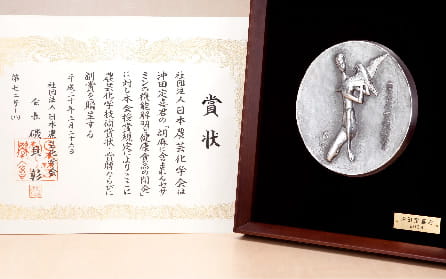 賞状
社団法人日本農芸化学会は
沖田定喜君の「胡麻に含まれるセサ
ミンの機能解明と健康食品の開発」
に対し本会授賞規定によりここに
農芸化学技術賞状、賞牌ならびに
副賞を贈呈する
平成二十年三月二十六日
社団法人日本農芸化学会
会長 磯貝 彰
2008